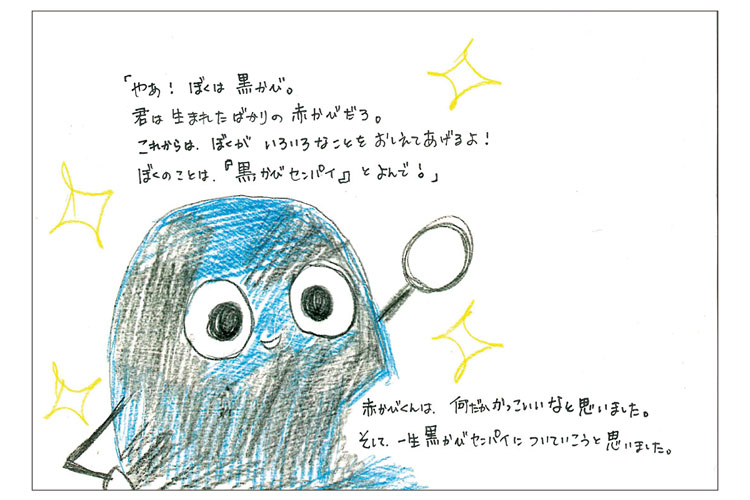 「やあ！ ぼくは 黒かび。
君は 生まれたばかりの 赤かびだろ。
これからは、ぼくが いろいろなことを おしえてあげるよ！
ぼくのことは、『黒かびセンパイ』とよんで！」
赤かびくんは、何だかかっこいいなと思いました。
そして、一生黒かびセンパイについていこうと思いました。